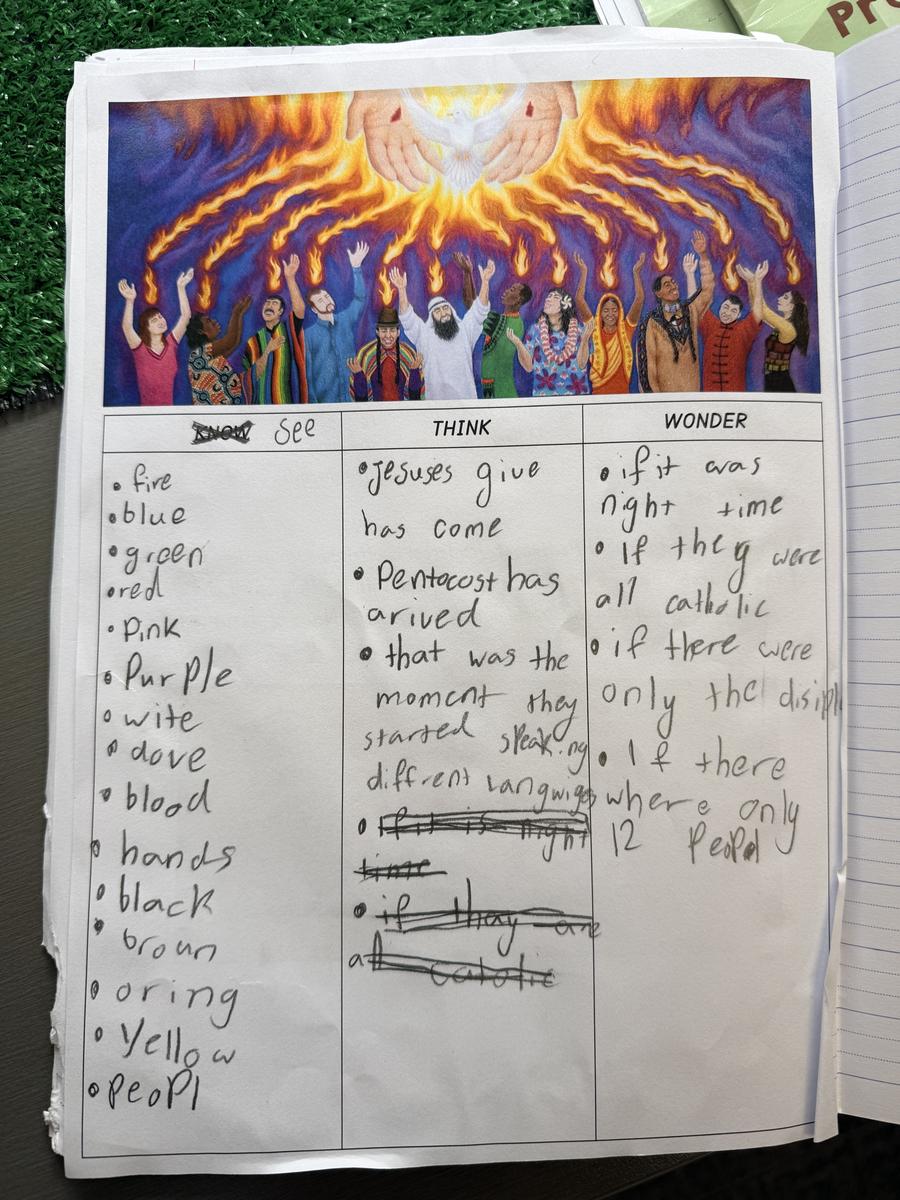 Pro
KNOW see THINK WONDER
• fire
• blue
• green
• red
• Pink
• Purple
• wite
• dove
• blood
• hands
• black
• broun
• oring
• Yellow
• PeoPl
• Jesuses give
has come
• Pentocost has
arived
• that was the
moment they
started speaking
diffrent langwiges
• if it is night
time
• if thay are
all catolic
• if it was
night time
• If they were
all catholic
• if there were
only the disipl
• If there
where only
12